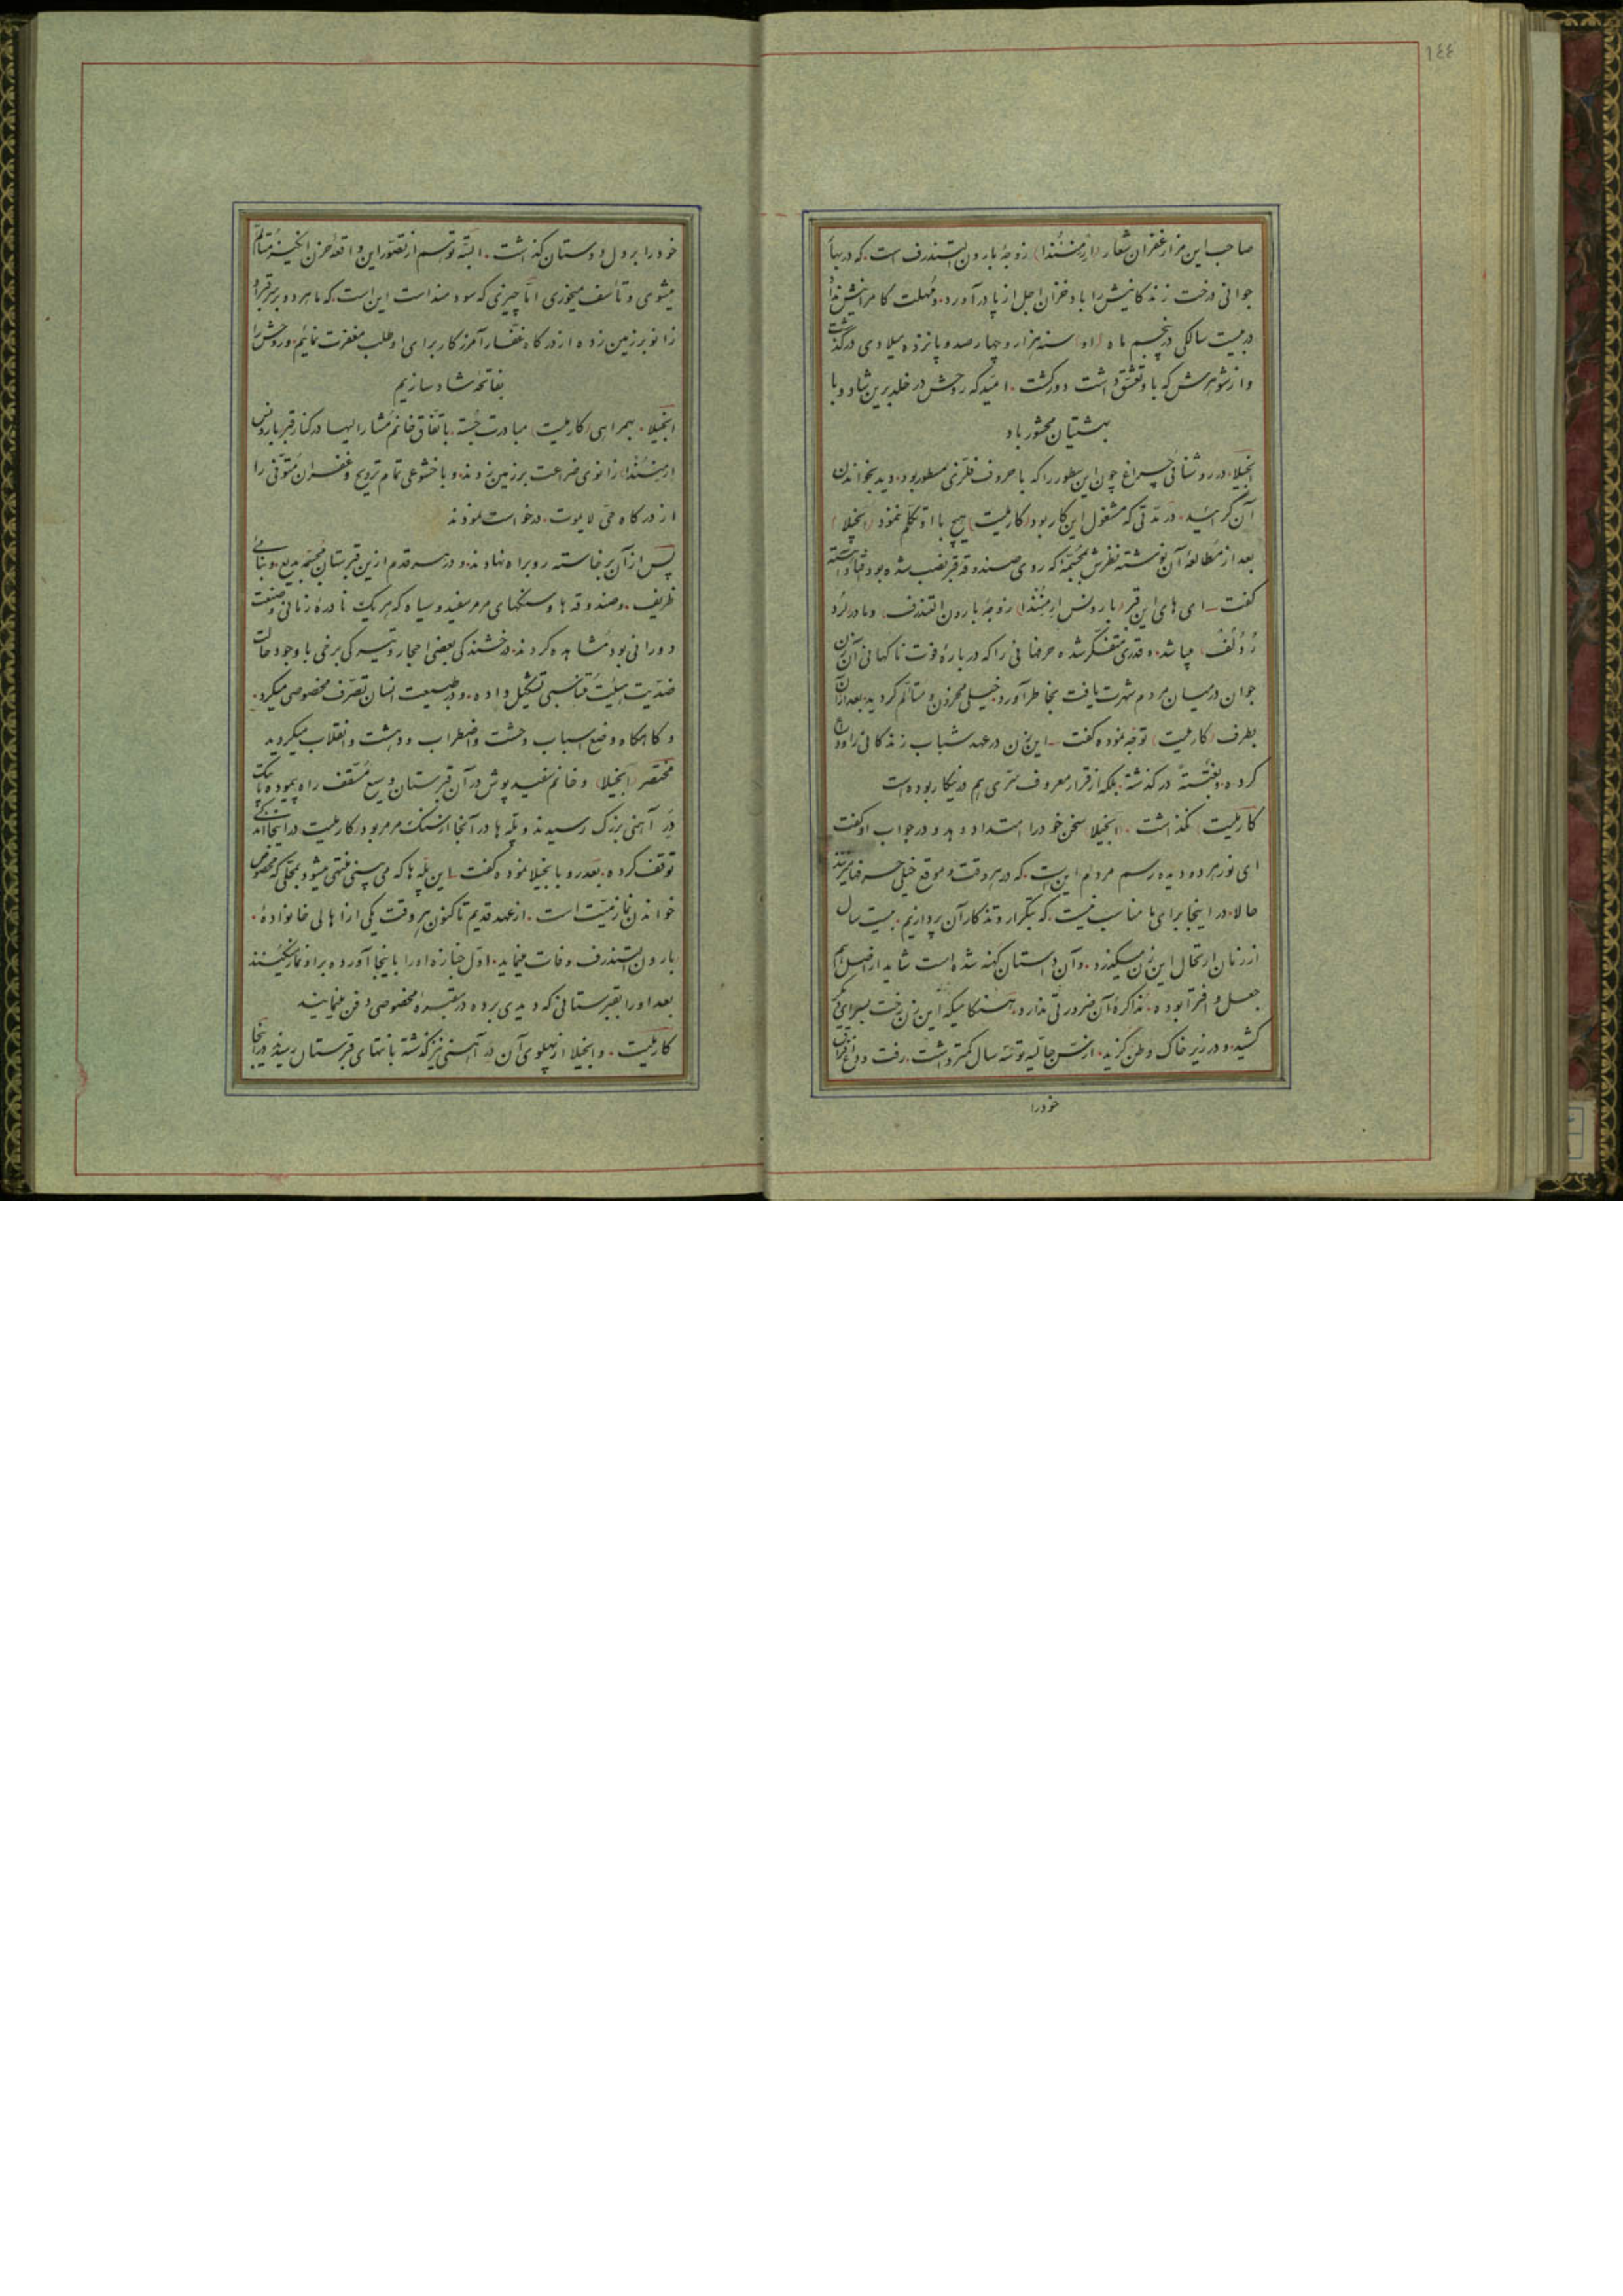 ١٤٤
صاحب این مزار غفران شعار (ارمنثندا) زوجهٔ بارون لستندرف است. که در بهار
جوانی درخت زندکانیش را باد خزان اجل از پا درآورد. و مهلت کامرانیش نداد
در بیست سالکی در پنجم ماه (او) سنه هزار و چهارصد و پانزده میلادی درکذشت
و از شوهرش که با او تعشق داشت دور کشت. امید که روحش در خلد برین شاد و با
بهشتیان محشور باد
انجیلا. در روشنائی چراغ چون این سطور را که با حروف فلزی مسطور بود. دید بخواندن
آن کرائید. در مدتی که مشغول این کار بود (کارملیت) هیچ با او تکلم ننمود (انجیلا)
بعد از مطالعهٔ آن نوشته نظرش بمجسمهٔ که روی صندوقه قبر نصب شده بود
کفت ــ ای های این قبر (بارونس ارمنثندا) زوجهٔ بارون التندرف و مادر لرد
رُدُلف میباشد. و قدری متفکر شده حرفهائی را که در بارهٔ فوت ناکهانی آن زن
جوان در میان مردم شهرت یافت بخاطر آورد. خیلی محزون و متألم کردید. بعد از آن
بطرف (کارملیت) توجه نموده کفت ــ این زن در عهد شباب زندکانی را وداع
کرده. و بغتةً درکذشته. بلکه از قرار معروف سرّی هم در اینکار بوده است
کارملیت نکذاشت. انجیلا سخن خود را امتداد دهد و در جواب او کفت
ای نور هر دو دیده رسم مردم این است. که در هر وقت و موقع خیلی حرفها میزنند
حالا. در اینجا برای ما مناسب نیست. که بتکرار و تذکار آن پردازیم. بیست سال
از زمان ارتحال این زن میکذرد. و آن داستان کهنه شده است شاید از اصل هم
جعل و افترا بوده. مذاکرهٔ آن ضرورتی ندارد. هنکامیکه این زن رخت بسرای دیکر
کشید. و در زیر خاک وطن کزید. از سن حالیه تو سه سال کمتر داشت. رفت و داغ فراق
خود را
خود را بر دل دوستان کذاشت. البته تو هم از تصور این واقعه حزن انکیز متألم
میشوی و تأسف میخوری اما چیزی که سودمند است این است. که ما هر دو بر سر قبر او
زانو بر زمین زده از درکاه غفار آمرزکار برای او طلب مغفرت نمائیم. و روحش را
بفاتحه شاد سازیم
انجیلا. بهمراهی (کارملیت) مبادرت جسته. باتفاق خانم مشارالیها در کنار قبر بارونس
ارمنثندا زانوی ضراعت بر زمین زدند. و با خشوعی تمام ترویح و غفران متوفی را
از درکاه حی لا یموت. درخواست نمودند
پس از آن برخاسته رو براه نهادند. و در هر سه قدم ازین قبرستان مجسمهٔ بدیع. و بنائی
ظریف. و صندوقه ها و سنکهای مرمر سفید و سیاه که هر یک نادرهٔ زمانی و صنعت
دورانی بود مشاهده کردند. درخشندکی بعضی احجار و تیرکی برخی با وجود حالت
ضدیت هیئت متناسبی تشکیل داده. و در طبیعت انسان تصرف مخصوصی میکرد.
و کاهکاه وضع اسباب وحشت و اضطراب و دهشت و انقلاب میکردید
مختصر (انجیلا) و خانم سفید پوش در آن قبرستان وسیع مسقف راه پیموده. به یک
در آهنی بزرک رسیدند و پله ها در آنجا از سنک مرمر بود. کارملیت در اینجا اندکی
توقف کرده. بعد رو بانجیلا نموده کفت ــ این پله ها که می بینی منتهی میشود بمحلی که مخصوص
خواندن نماز میّت است. از عهد قدیم تا کنون هر وقت یکی از اهالی خانوادهٔ.
بارون لستندرف وفات مینماید. اول جنازه او را باینجا آورده بر او نماز میکنند
بعد او را بقبرستانی که دیدی برده در مقبرهٔ مخصوصی دفن مینمایند
کارملیت. و انجیلا از پهلوی آن در آهنی نیز کذشته بانتهای قبرستان رسیدند در اینجا